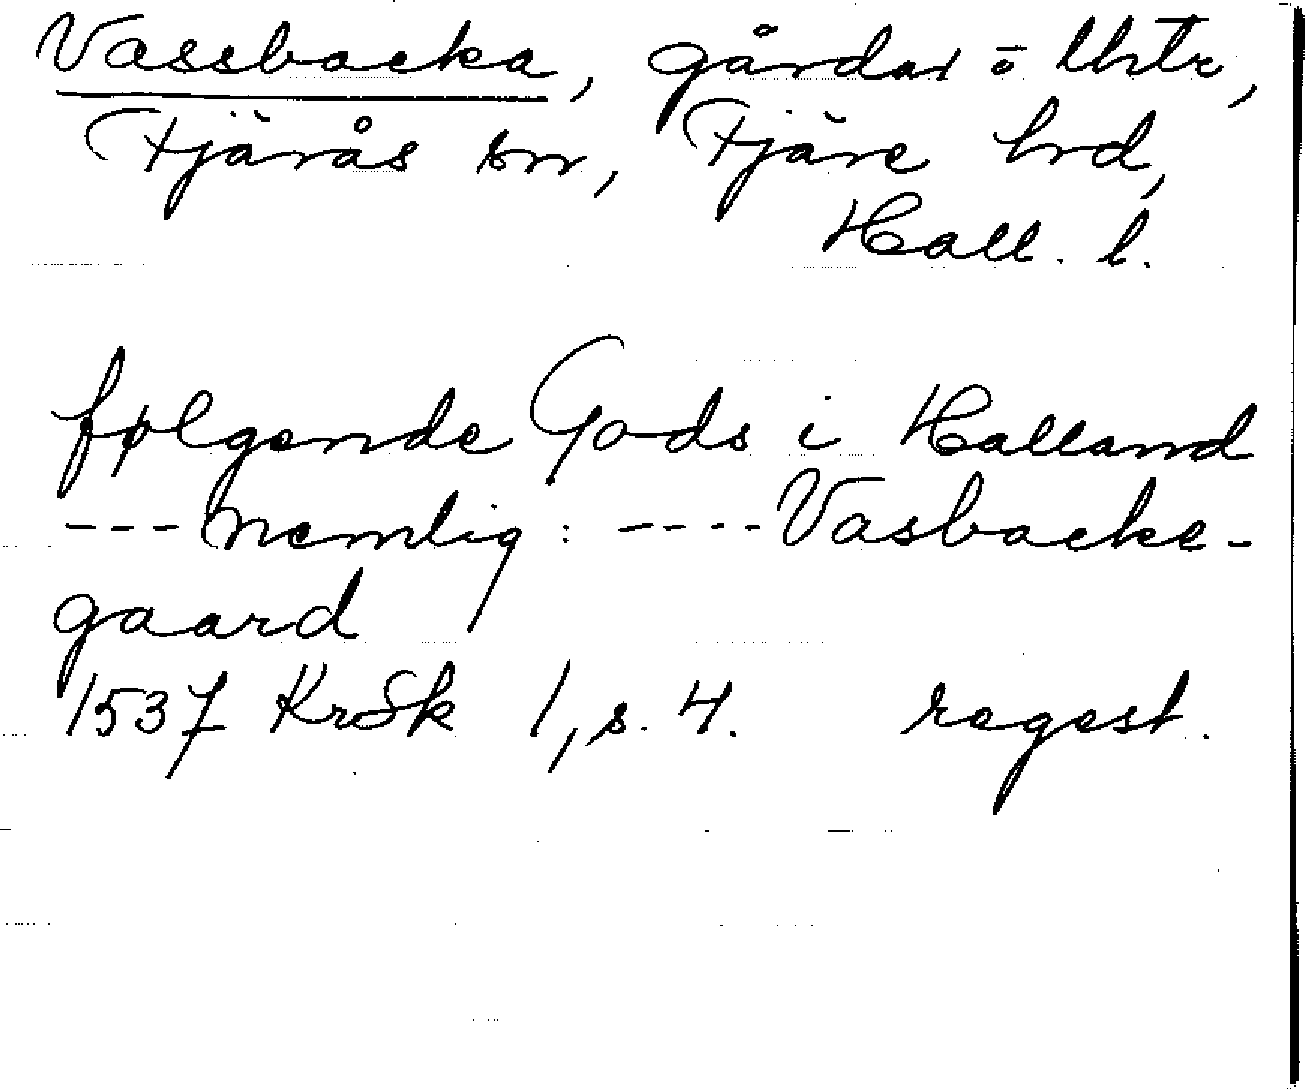 Vassbacka, gårdar o lht,
Fjärås sn, Fjäre hd,
Hall. l.
følgende Gods i Halland
--- nemlig: ---- Vasbacke-
gaard
1537 KrSk 1, s. 4. regest.